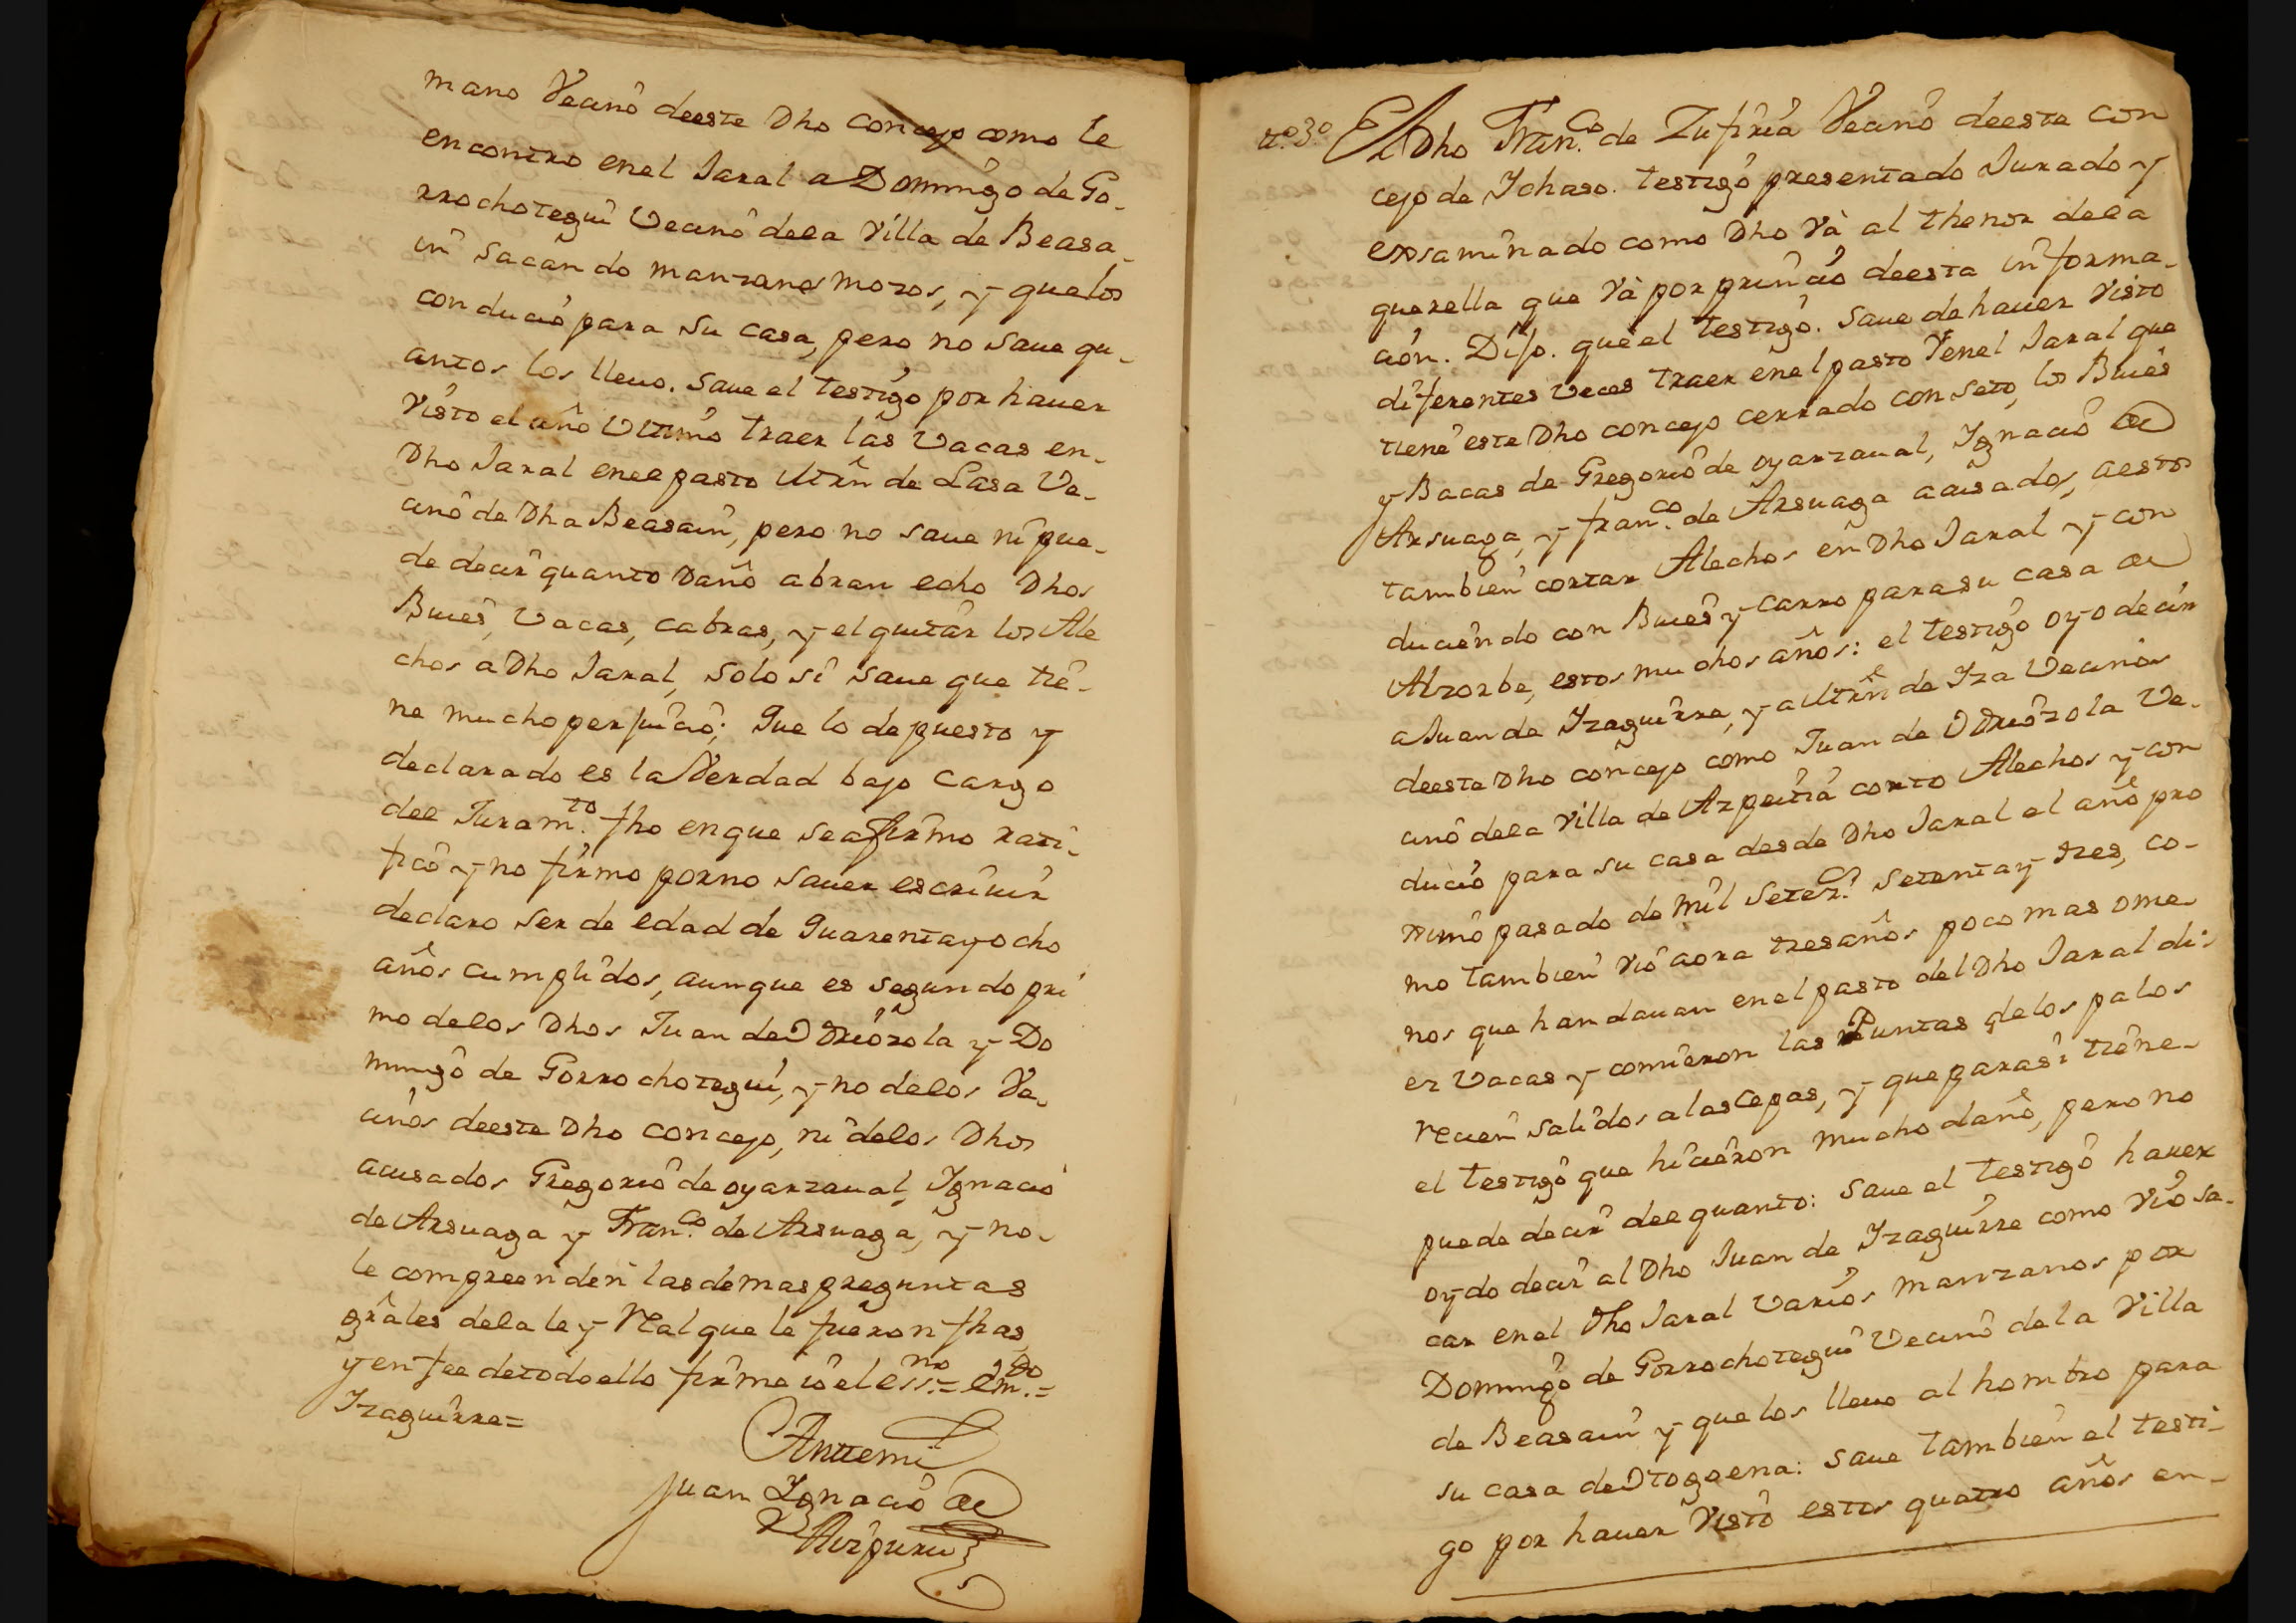 mano Vecino deeste Dho concejo como le
encontro enel Jaral a Domingo de Go-
rrochotegui Vecino dela Villa de Beasa-
in sacando manzanos mozos, y que los
conducio para su casa, pero no save qu-
antos los llevo. save el testigo por haver
visto el año Ultimo traer las Vacas en-
Dho Jaral enel pasto Mrn de Lasa Ve-
cino de Dha Beasain, pero no save ni pue-
de decir quanto Daño abran echo Dhos
Bueis, Vacas, cabras, y el quitar los Ale
chos a Dho Jaral, solo si save que tie-
ne mucho perjuicio; Que lo depuesto y
declarado es la Verdad bajo cargo
del Juram.to fho en que se afirmo rati-
fico y no firmo por no saver escrivir
declaro ser de edad de Quarenta y ocho
años cumplidos, aunque es segundo pri
mo delos Dhos Juan de Odriozola y Do
mingo de Gorrochotegui, y no delos Ve-
cinos deeste Dho concejo, ni delos Dhos
acusados Gregorio de oyarzaval, Ignacio
de Arsuaga y Fran.co de Arsuaga, y no-
le compreenden las demas preguntas
grales dela ley Real que le fueron fhas,
y en fee de todo ello firme io el Ess.no = Em.do =
Izaguirre =
Antemi
Juan Ignacio de
Aizpuru
t.o 3.o El Dho Fran.co de Zufiria Vecino deeste con
cejo de Ichaso. testigo presentado Jurado y
exsaminado como Dho Và al thenor dela
querella que Và por principio deesta informa-
ción. Dijo. que el testigo. save de haver visto
diferentes veces traer enel pasto Venel Jaral que
tiene este Dho concejo cerrado con seto, los Bueis
y Bacas de Gregorio de oyarzaval, Ignacio de
Arsuaga, y fran.co de Arsuaga acusados, aestos
tambien cortar Alechos en Dho Jaral y con
duciendo con Bueis y carro para su casa de
Alzorbe, estos muchos años: el testigo oyo decir
a Juan de Izaguirre, y a Mrn de Iza Vecinos
deeste Dho concejo como Juan de Odriozola Ve-
cino dela Villa de Azpeitia corto Alechos y con
ducio para su casa desde Dho Jaral el año pro
ximo pasado de mil setez.s setenta y tres, co-
mo tambien vio aora tres años poco mas ome
nos que handavan enel pasto del Dho Jaral di-
ez Vacas y comieron las Puntas delos palos
recien salidos alas cepas, y que para si tiene
el testigo que hicieron mucho daño, pero no
puede decir del quanto: save el testigo haver
oydo decir al Dho Juan de Izaguirre como vio sa-
car enel Dho Jaral varios manzanos por
Domingo de Gorrochotegui Vecino dela Villa
de Beasain y que los llevo al hombro para
su casa de Otogoena: save tambien el testi-
go por haver Visto estos quatro años en-